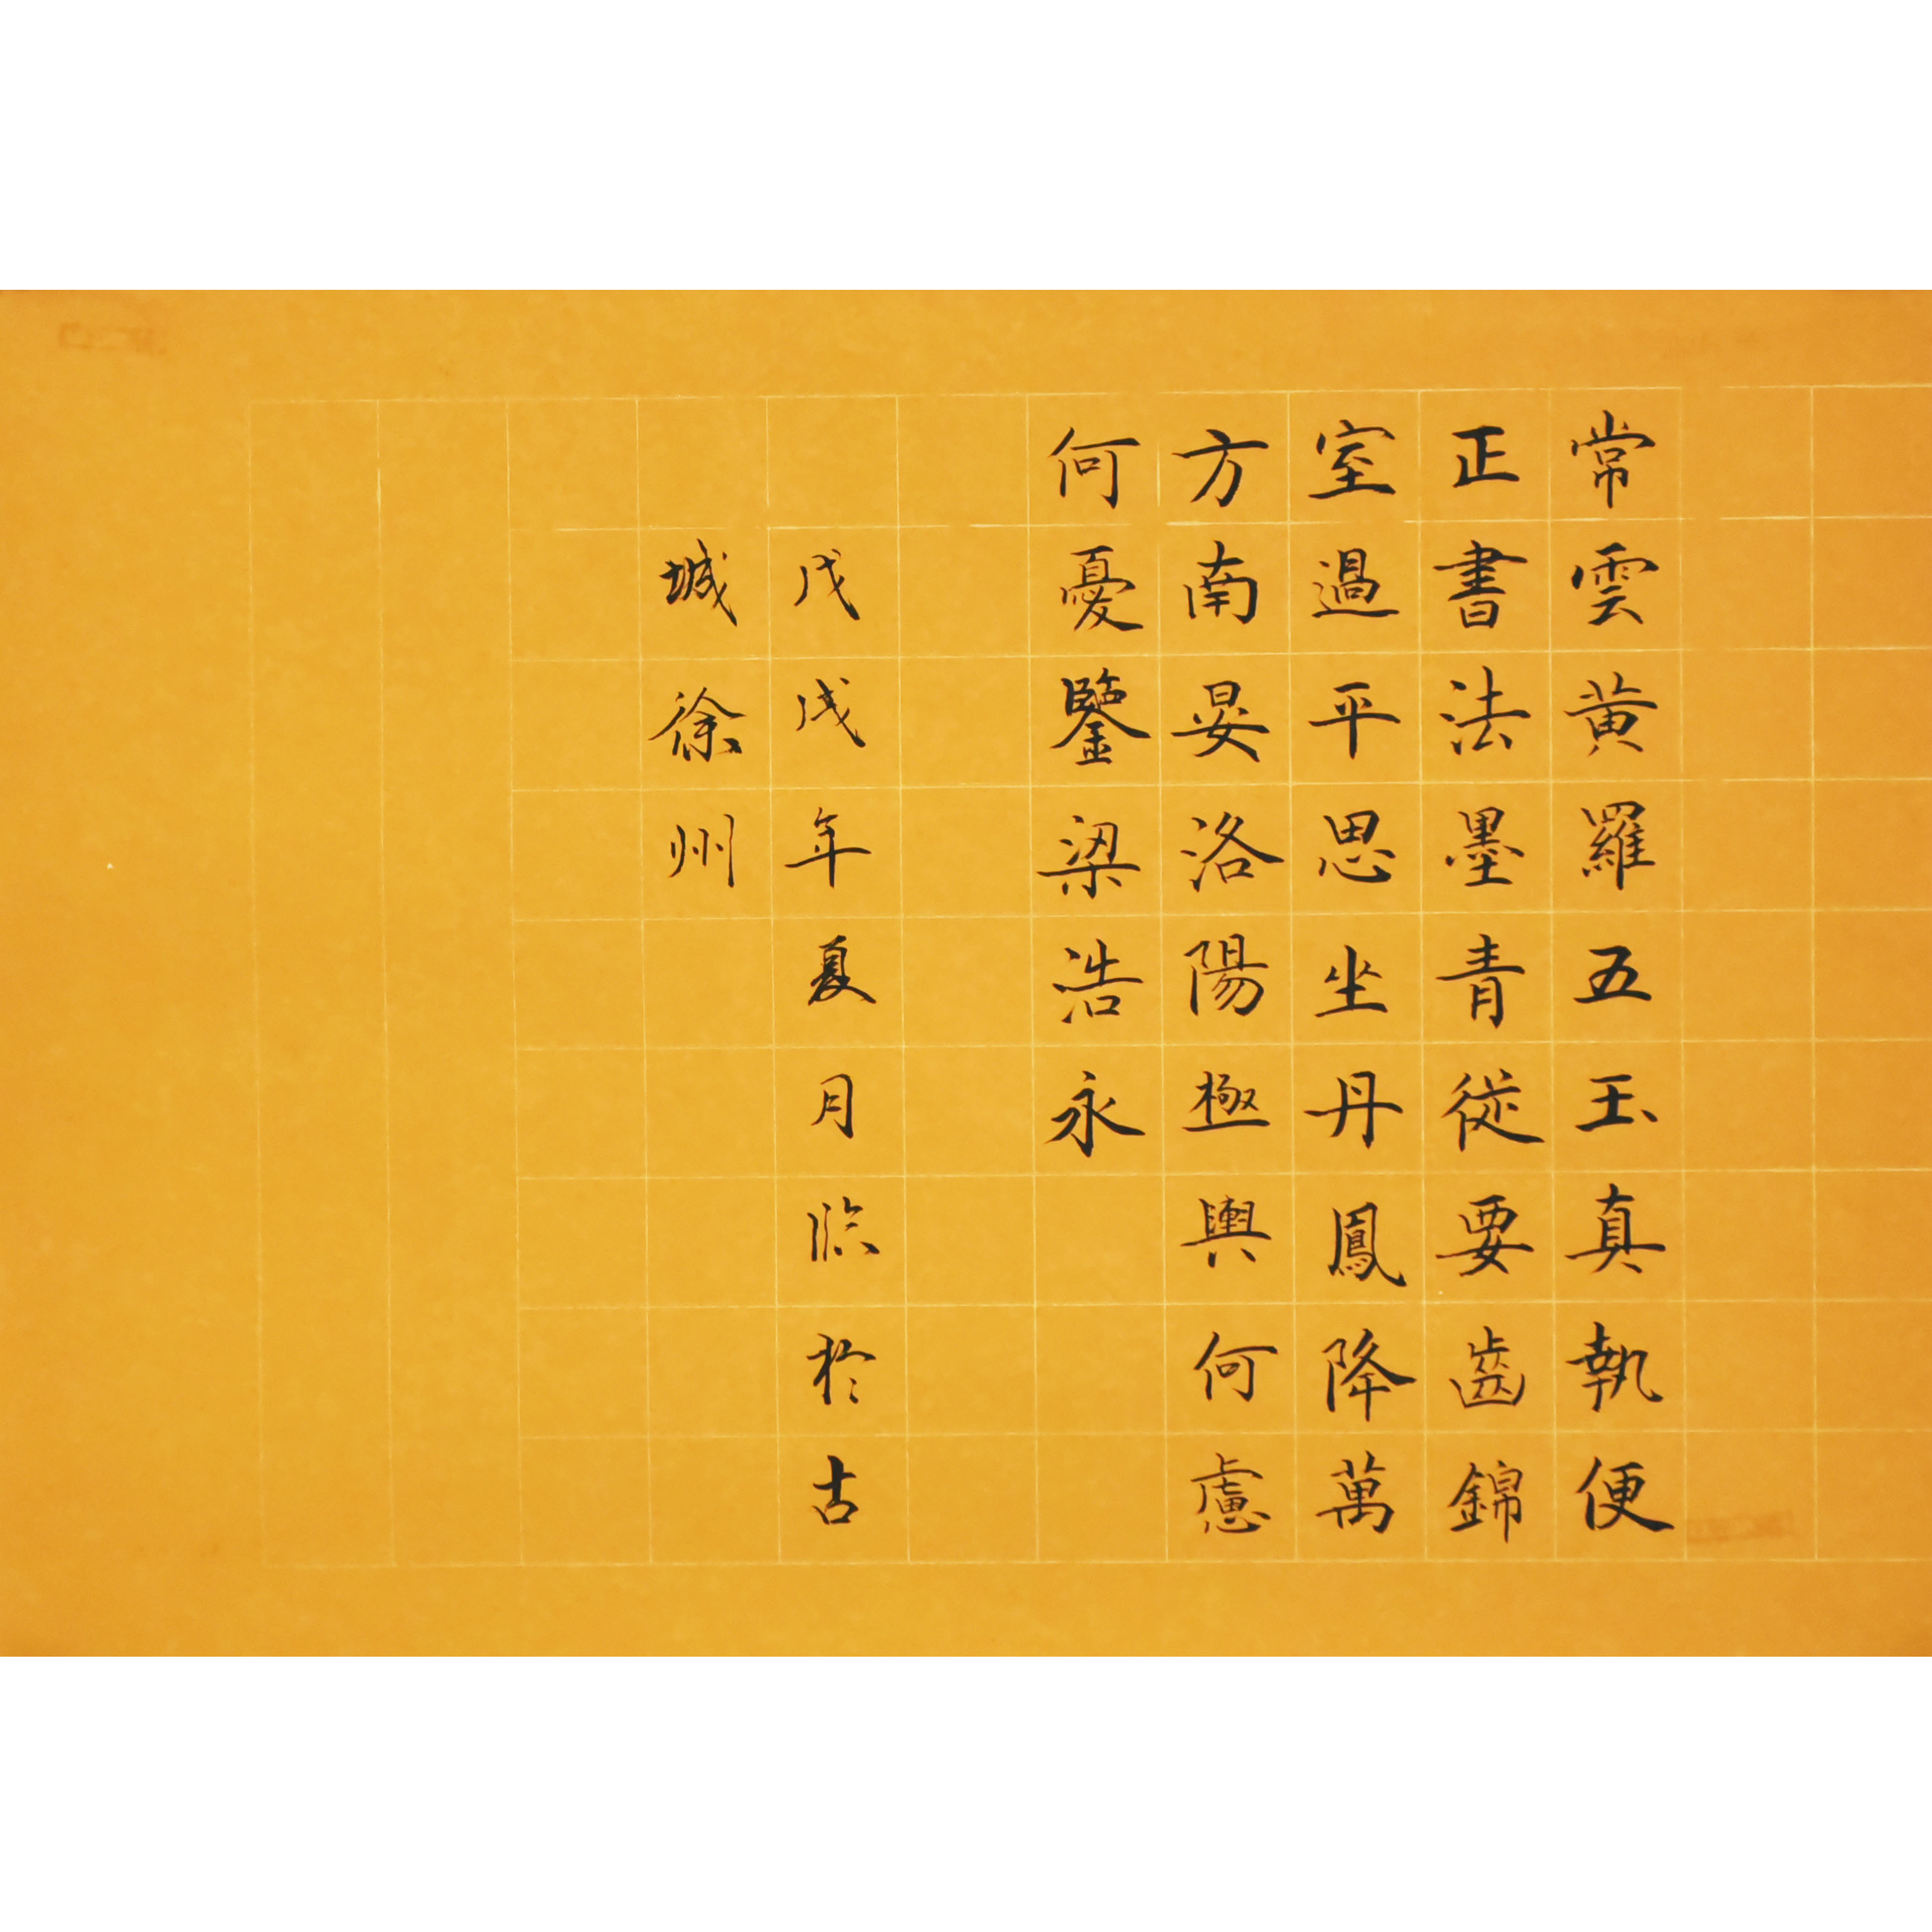 常雲黄羅五玉真執便
正書法墨青從要齒錦
室過平思坐丹鳳降萬
方南晏洛陽極輿何慮
何憂鑒梁浩永
戊戌年夏月臨於古
城徐州